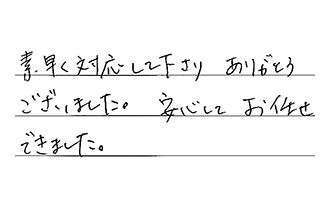 素早く対応して下さり ありがとう
ございました。 安心して お任せ
できました。